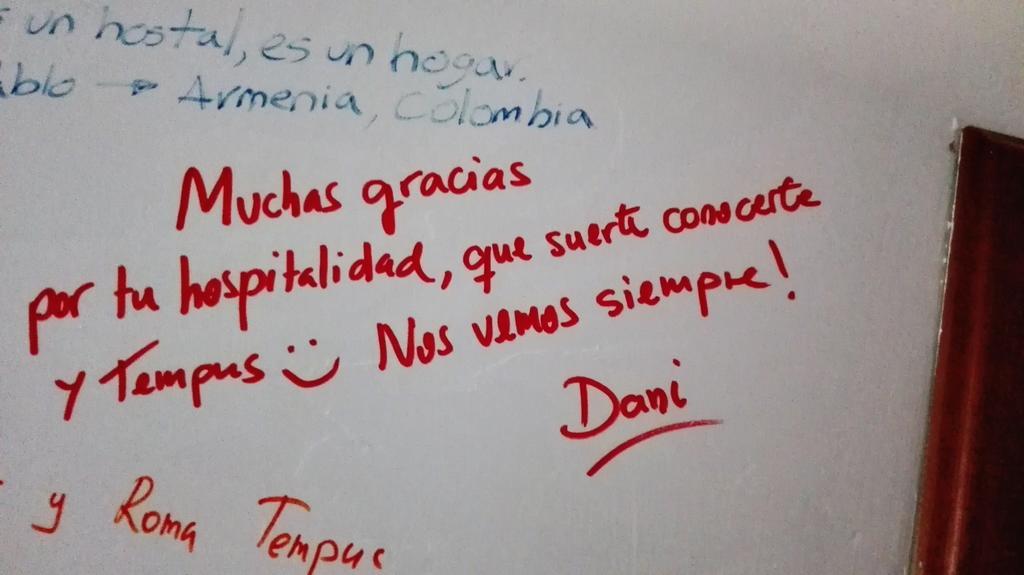 un hostal, es un hogar.
→ Armenia, Colombia
Muchas gracias
por tu hospitalidad, que suerte conocerte
y Tempus :) Nos vemos siempre!
Dani
y Roma Tempus